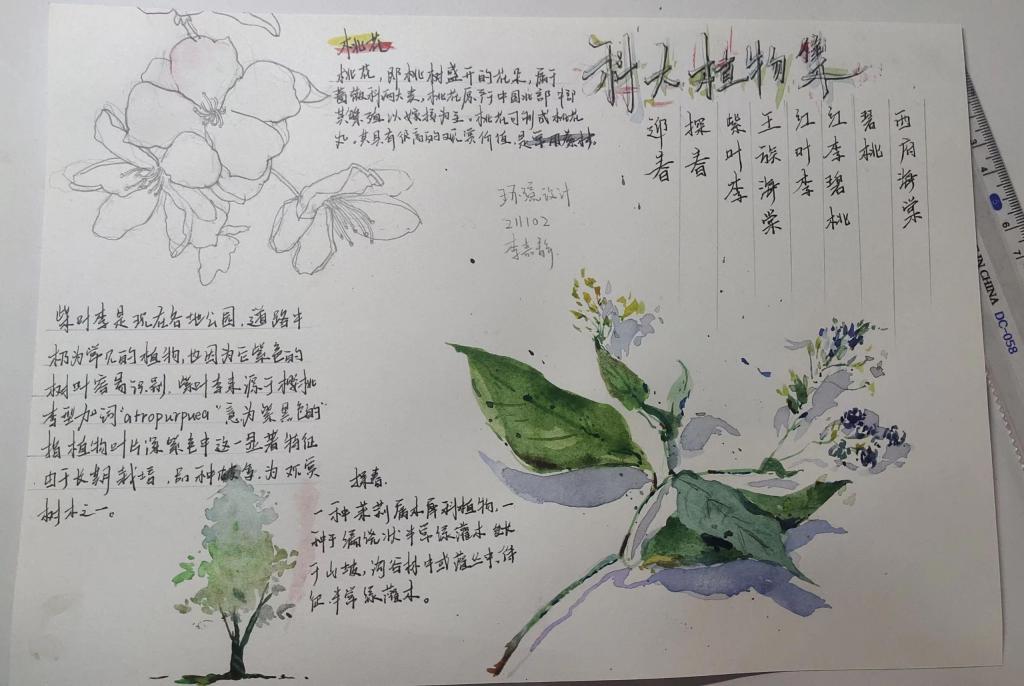 科大植物集
桃花
桃花，即桃树盛开的花朵，属于
蔷薇科植物，桃花原产于中国北部中部
其繁殖以嫁接为主，桃花可制成桃花
丸，其具有很高的观赏价值，是
西府海棠
碧桃
红李碧桃
红叶李
王族海棠
紫叶李
探春
迎春
环强设计
211102
李嘉静
紫叶李是现在各地公园，道路中
极为常见的植物，也因为它紫色的
树叶容易识别，紫叶李来源于樱桃
李型加词"atropurpuea"意为紫黑色的"
指植物叶片深紫色中这一显著特征
由于长期栽培，品种 为观赏
树木之一。
探春，
一种茉莉属木犀科植物，一
种于 状半常绿灌木 生长
于山坡，沟谷林中或灌丛中，
半常绿灌木。
IN CHINA DC-058